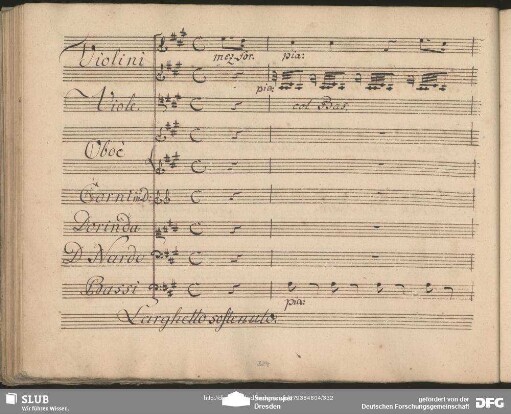 Violini
mez. for. pia:
pia:
Viole. col Bas.
Oboè
Corni in D.
Dorinda
D. Nardo
Bassi
pia:
Larghetto sostenuto.
SLUB
Wir führen Wissen.
Dresden
gefördert von der
Deutschen Forschungsgemeinschaft
DFG